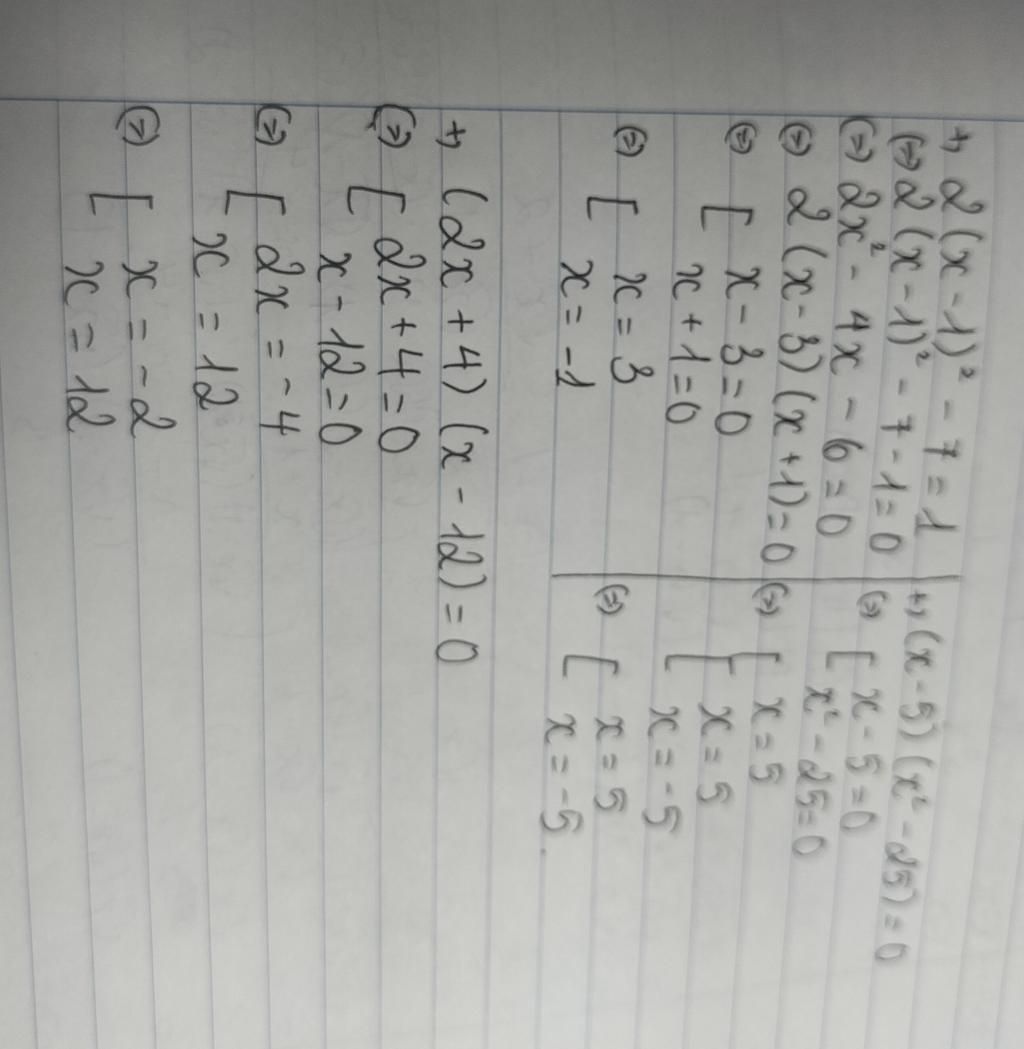 +, 2(x-1)² - 7 = 1
(=) 2(x-1)² - 7 - 1 = 0
(=) 2x² - 4x - 6 = 0
(=) 2(x-3)(x+1) = 0
(=) [ x - 3 = 0
x + 1 = 0
(=) [ x = 3
x = -1
+, (x-5)(x² - 25) = 0
(=) [ x - 5 = 0
x² - 25 = 0
(=) [ x = 5
[ x = 5
x = -5
(=) [ x = 5
x = -5.
+, (2x + 4)(x - 12) = 0
(=) [ 2x + 4 = 0
x - 12 = 0
(=) [ 2x = -4
x = 12
(=) [ x = -2
x = 12